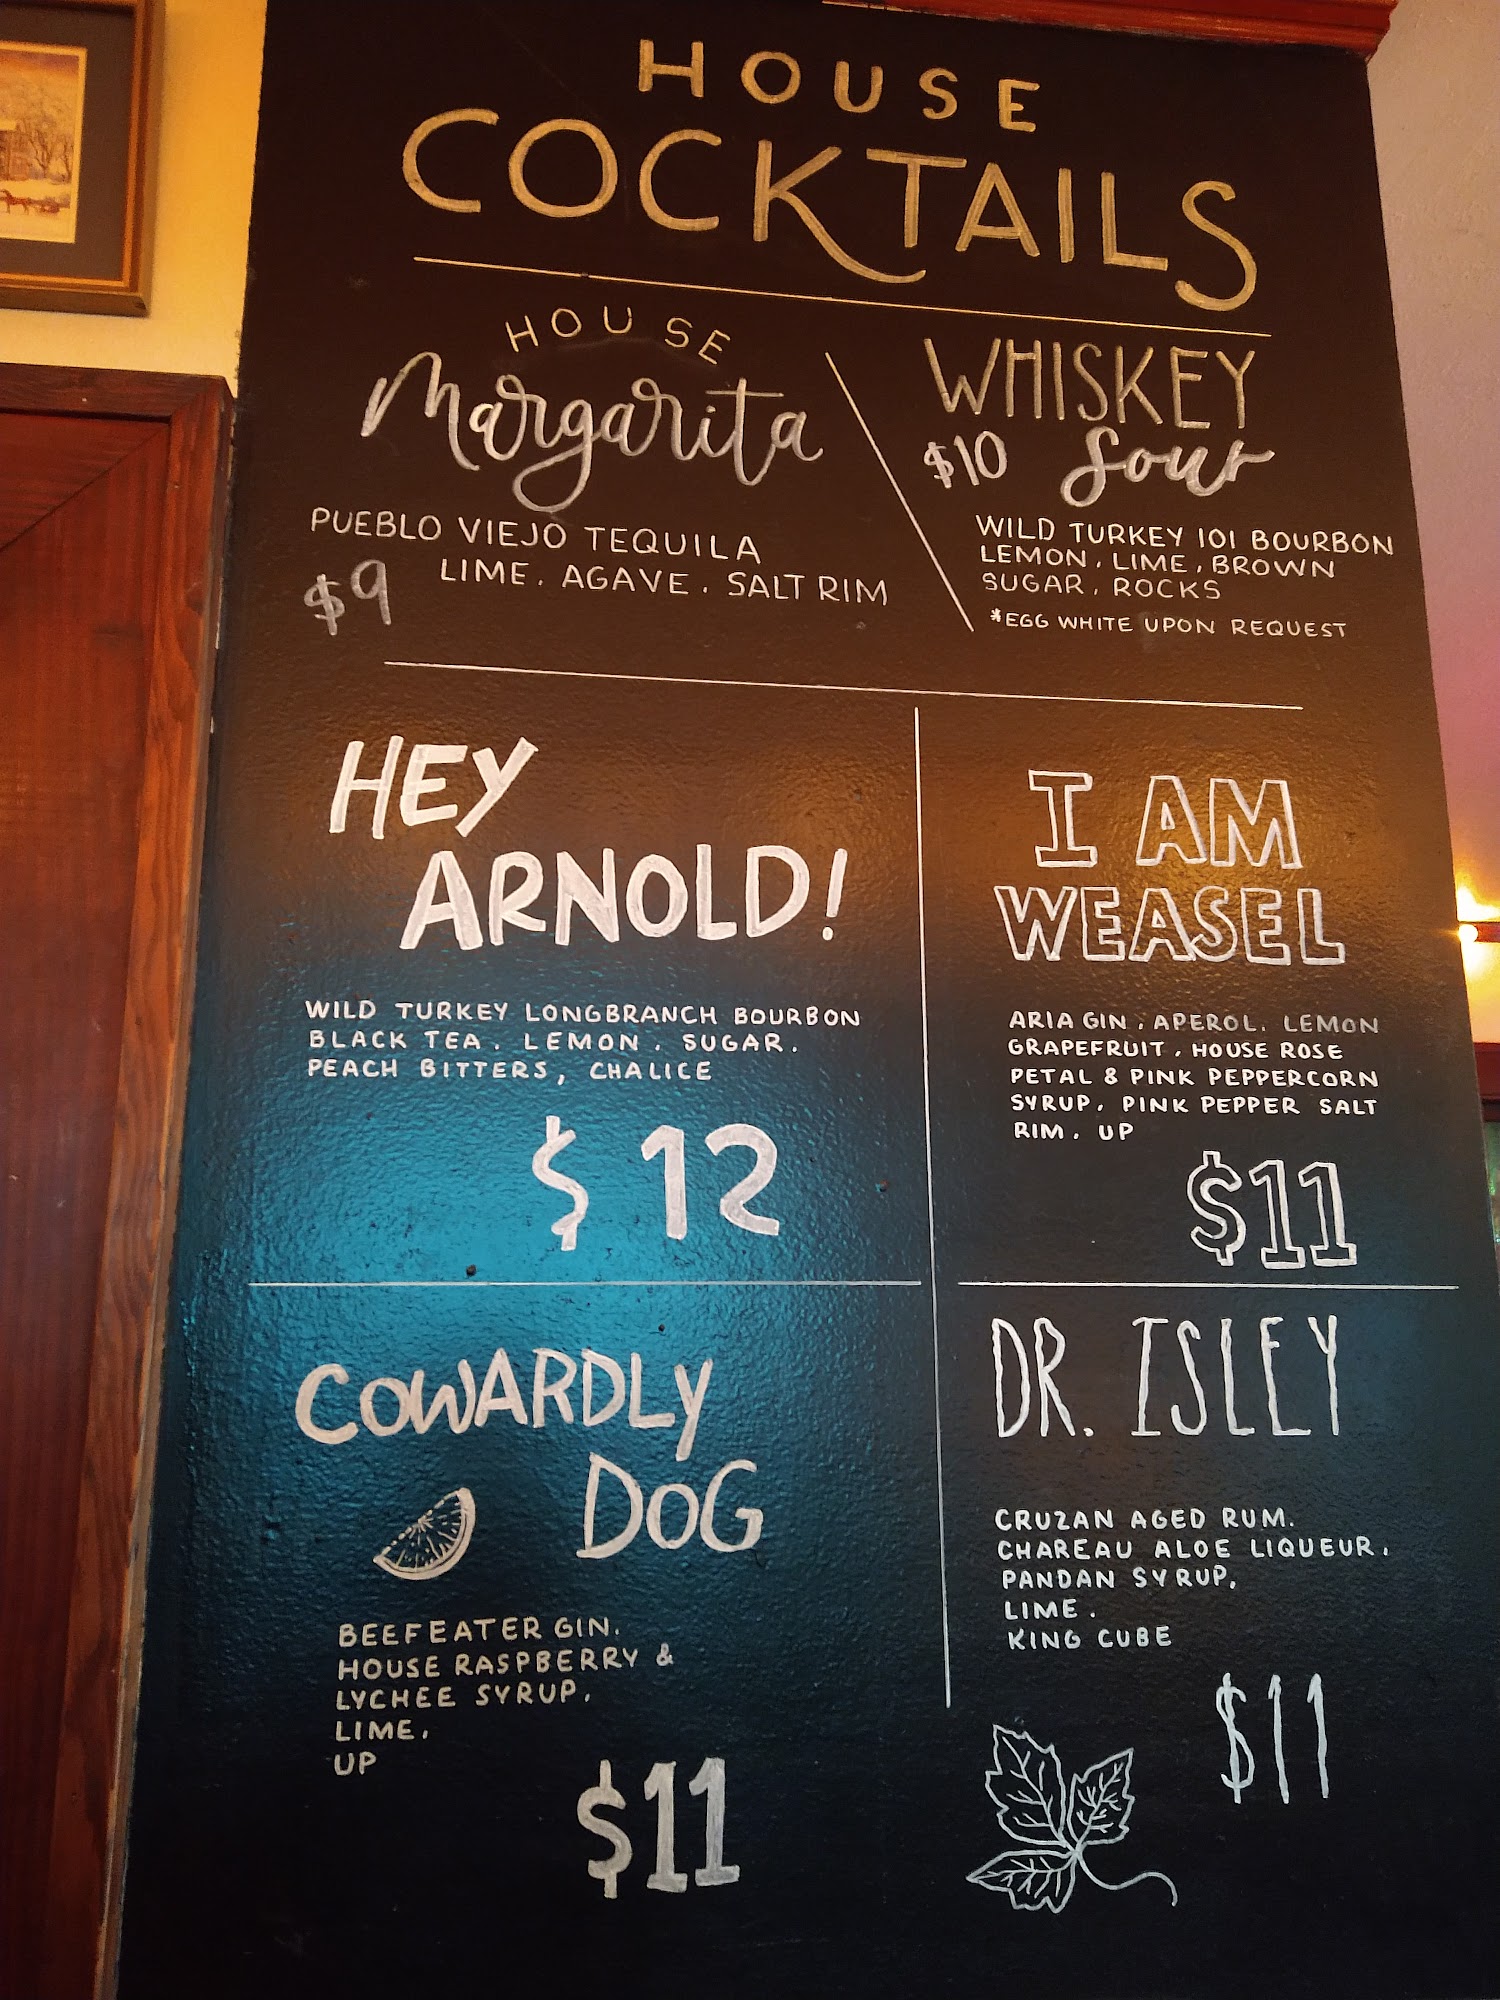 HOUSE
COCKTAILS
HOUSE
Margarita
PUEBLO VIEJO TEQUILA
LIME. AGAVE. SALT RIM
$9
WHISKEY
$10 Sour
WILD TURKEY 101 BOURBON
LEMON, LIME, BROWN
SUGAR, ROCKS
*EGG WHITE UPON REQUEST
HEY
ARNOLD!
WILD TURKEY LONGBRANCH BOURBON
BLACK TEA. LEMON. SUGAR.
PEACH BITTERS, CHALICE
$12
I AM
WEASEL
ARIA GIN. APEROL. LEMON
GRAPEFRUIT. HOUSE ROSE
PETAL & PINK PEPPERCORN
SYRUP. PINK PEPPER SALT
RIM. UP
$11
COWARDLY
DOG
BEEFEATER GIN.
HOUSE RASPBERRY &
LYCHEE SYRUP.
LIME.
UP
$11
DR. ISLEY
CRUZAN AGED RUM.
CHAREAU ALOE LIQUEUR.
PANDAN SYRUP.
LIME.
KING CUBE
$11